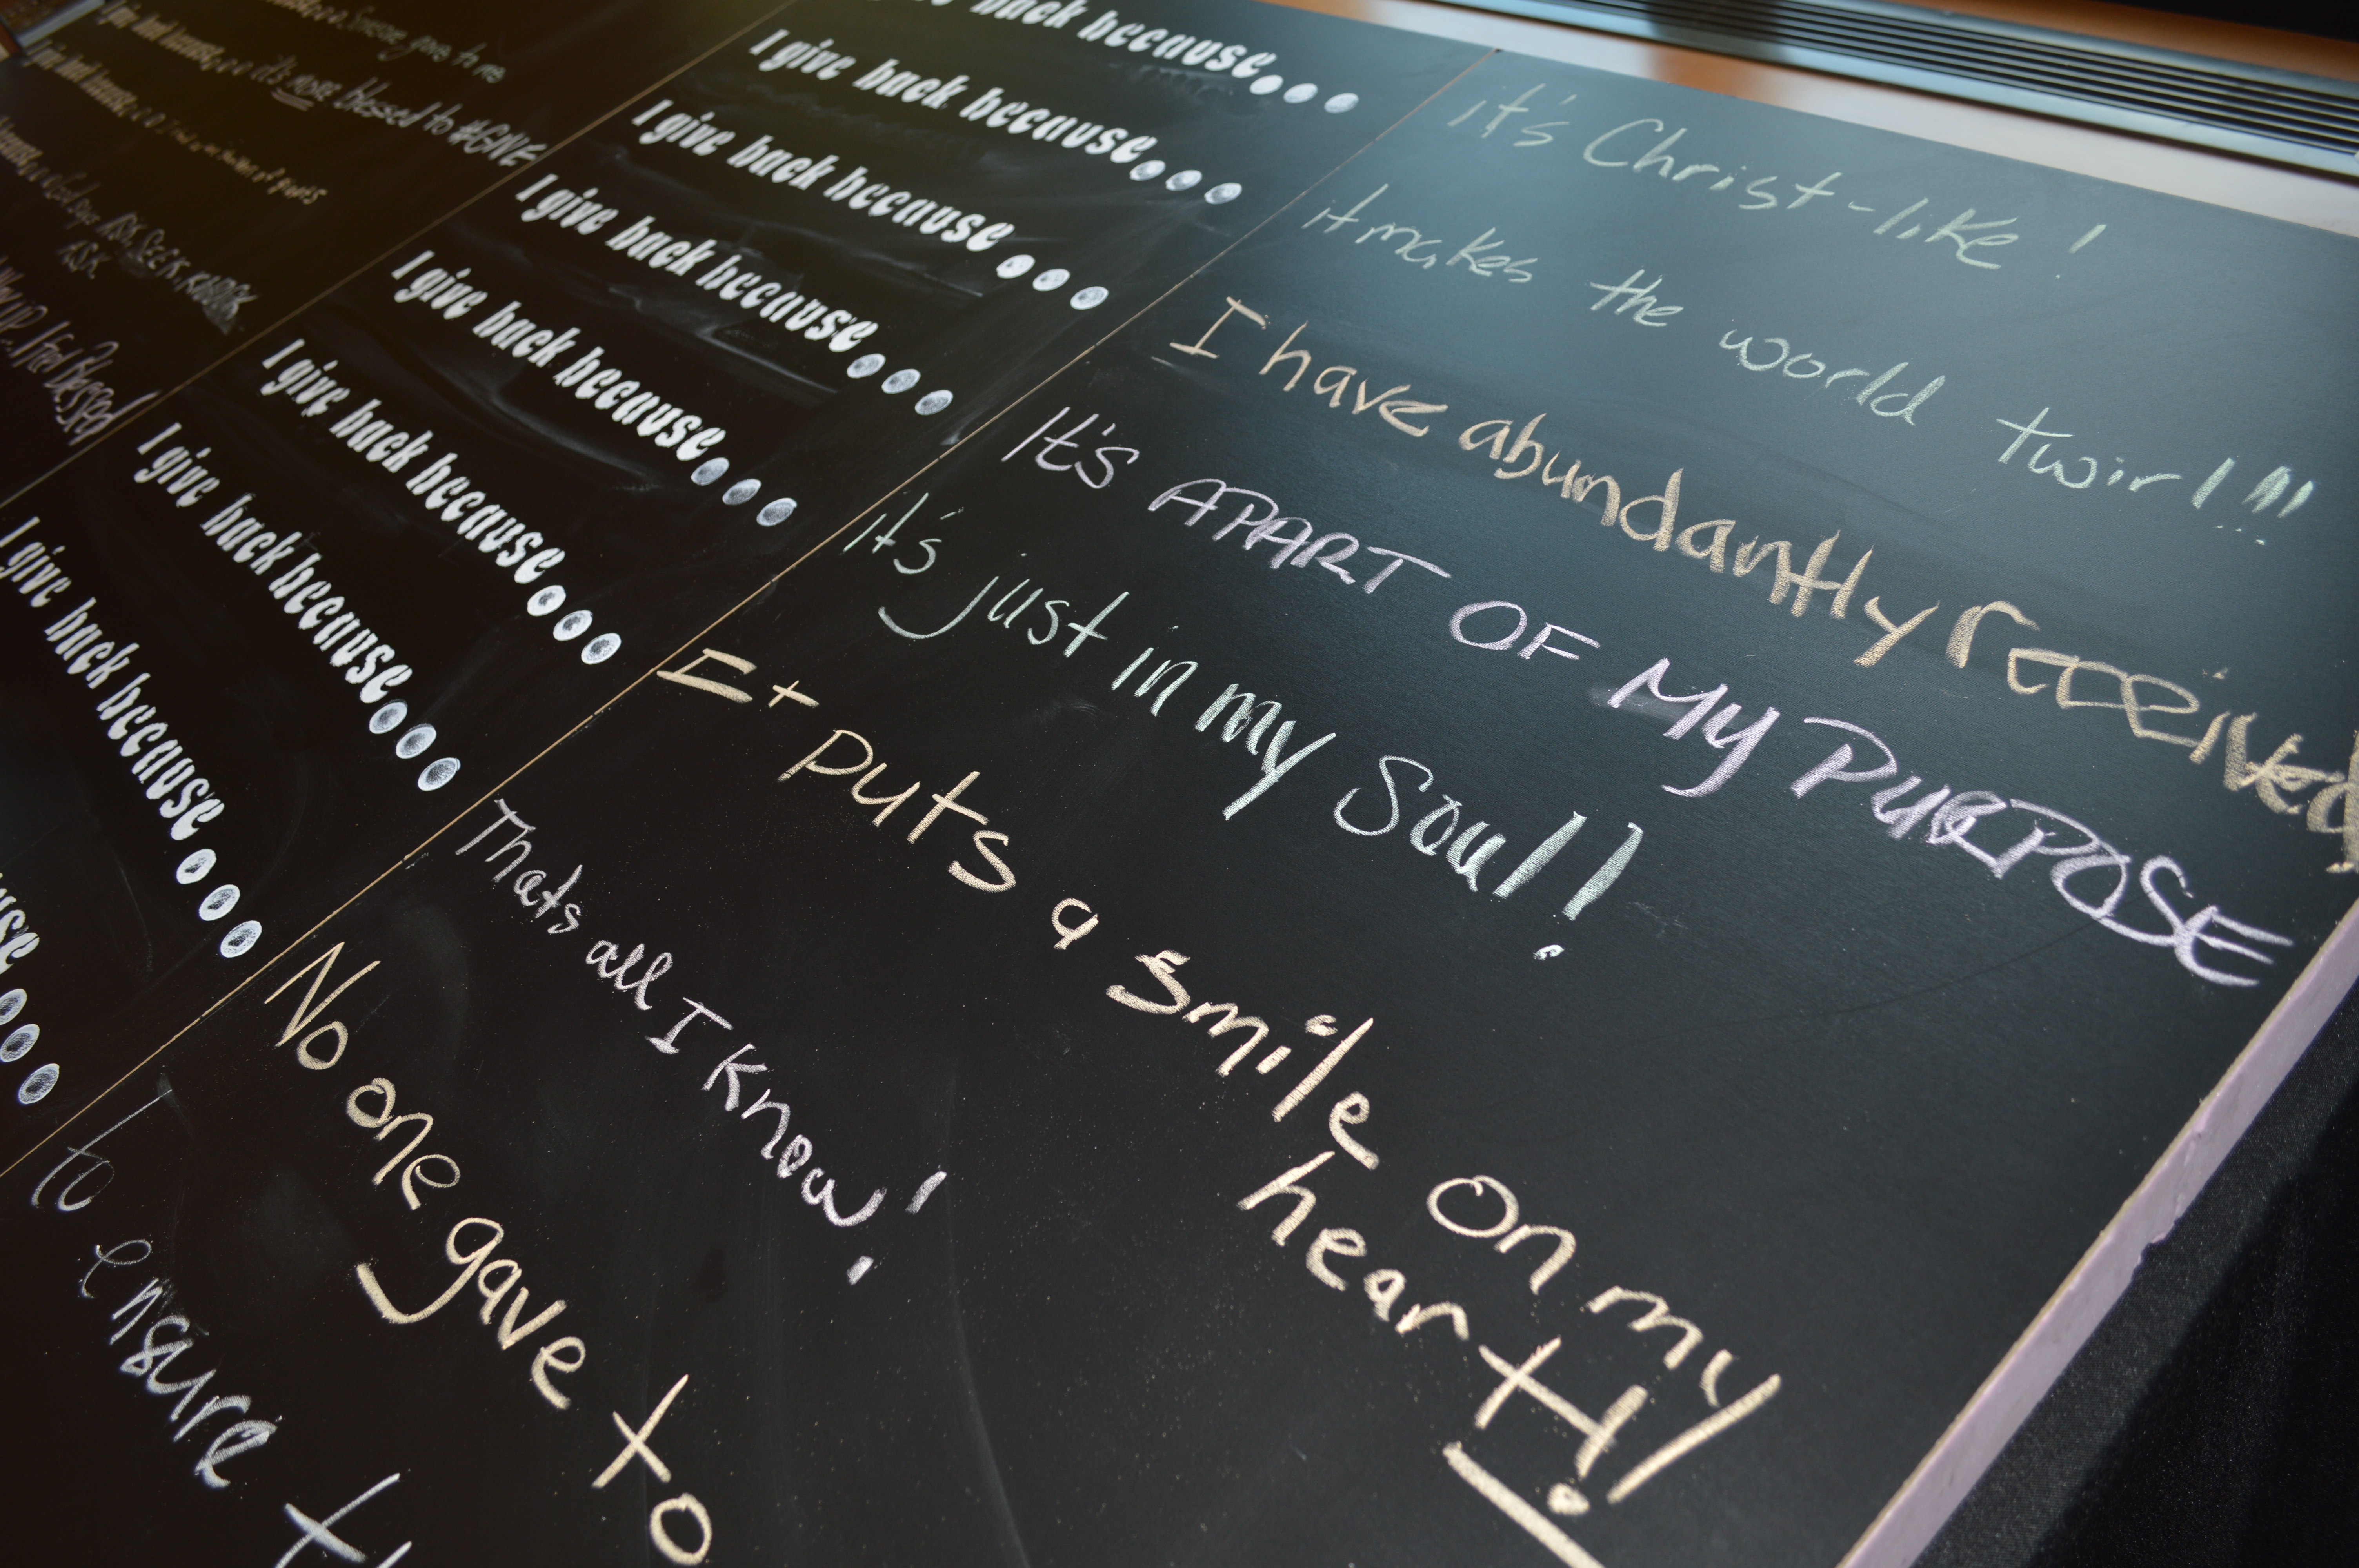 gave to me
I give back because... it's more blessed to #GIVE
I give back because...
ASK, SEEK, KNOCK
ASK
I feel blessed
back because... it's Christ-like!
I give back because... it makes the world twirl!!!
I give back because... I have abundantly received
I give back because... It's APART OF MY PURPOSE
I give back because... it's just in my Soul!
I give back because... It puts a smile on my
heart!
I give back because... Thats all I know!
I give back because... No one gave to
... to ensure th